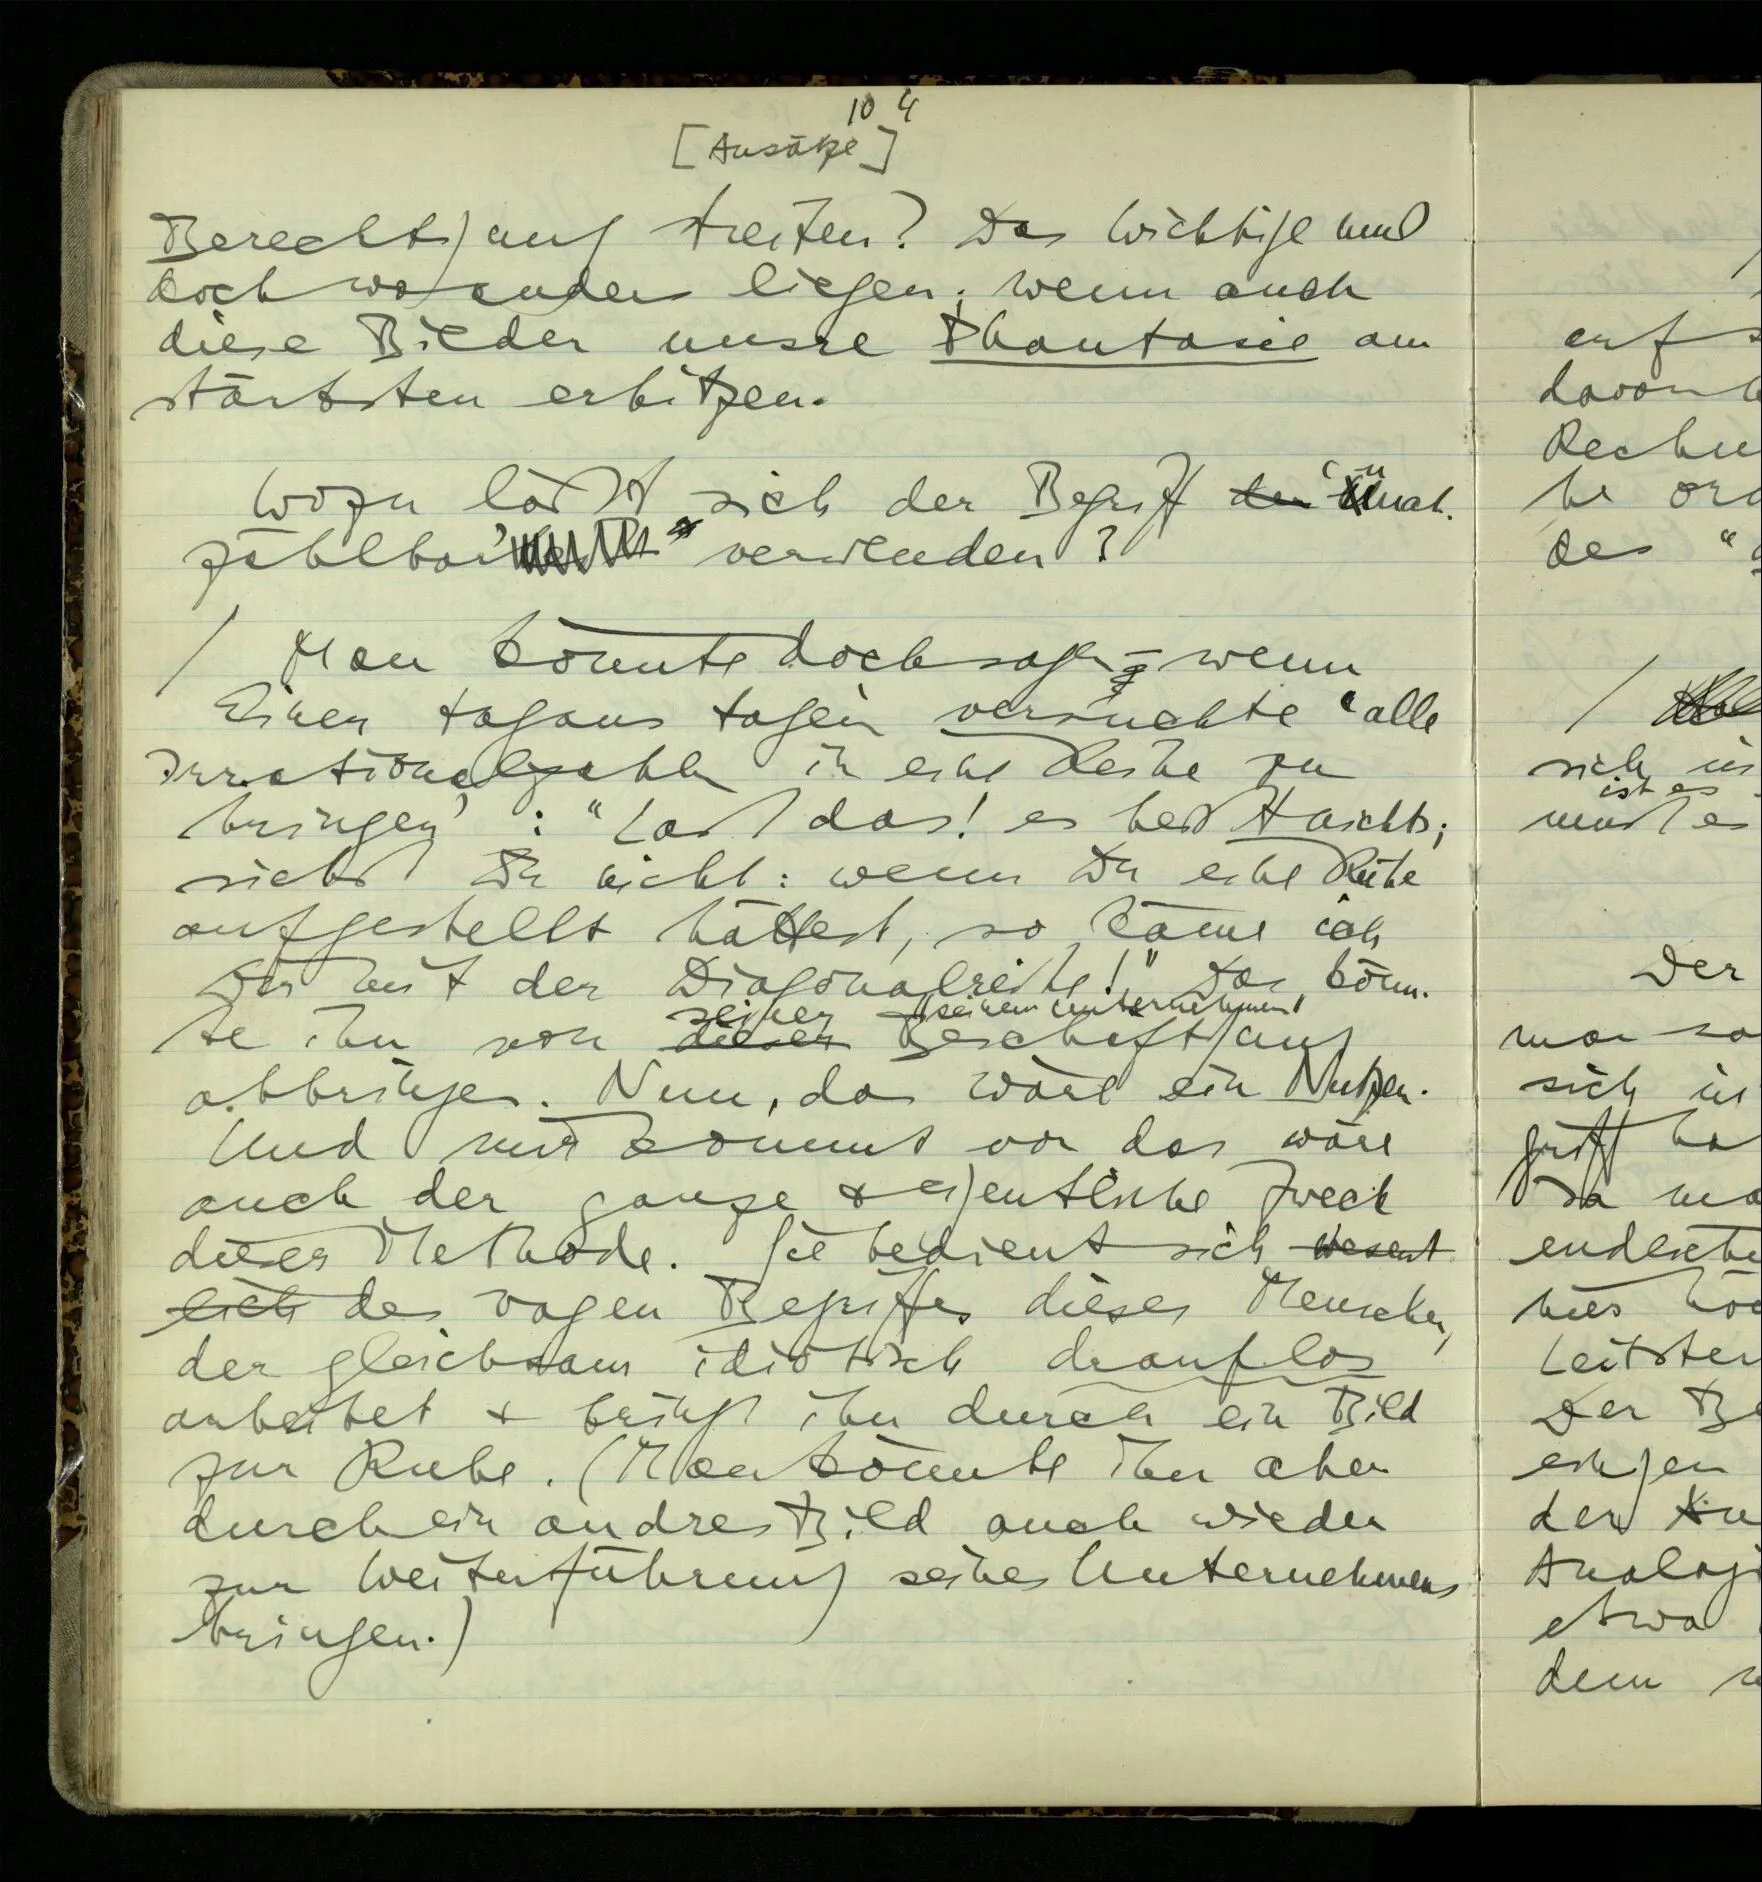 10 4
[Ansätze]
Berechtigung streiten? Das Wichtige muß
doch wo anders liegen; wenn auch
diese Bilder unsre Phantasie am
stärksten erhitzen.
Wozu läßt sich der Begriff der 'unab-
zählbar' verwenden?
/ Man könnte doch sagen – wenn
Einer tagaus tagein versuchte 'alle
Irrationalzahlen in eine Reihe zu
bringen' : "Laß das! es heißt nichts;
siehst Du nicht: wenn Du eine Reihe
aufgestellt hättest, so käme ich
Dir mit der Diagonalreihe!" Das könn-
seiner "seinem Unternehmen"
te ihn von dieser Beschäftigung
abbringen. Nun, das wäre ein Nutzen.
Und mir kommt vor das wäre
auch der ganze & eigentliche Zweck
dieser Methode. Sie bedient sich wesent
lich des vagen Begriffes dieses Menschen,
der gleichsam idiotisch drauflos
arbeitet & bringt ihn durch ein Bild
zur Ruhe. (Man könnte ihn aber
durch ein andres Bild auch wieder
zur Weiterführung seines Unternehmens
bringen.)
auf
davon
des "
/
sich
ist es
muß es
Der
man
sich
Da
Der
der
etwa
dem